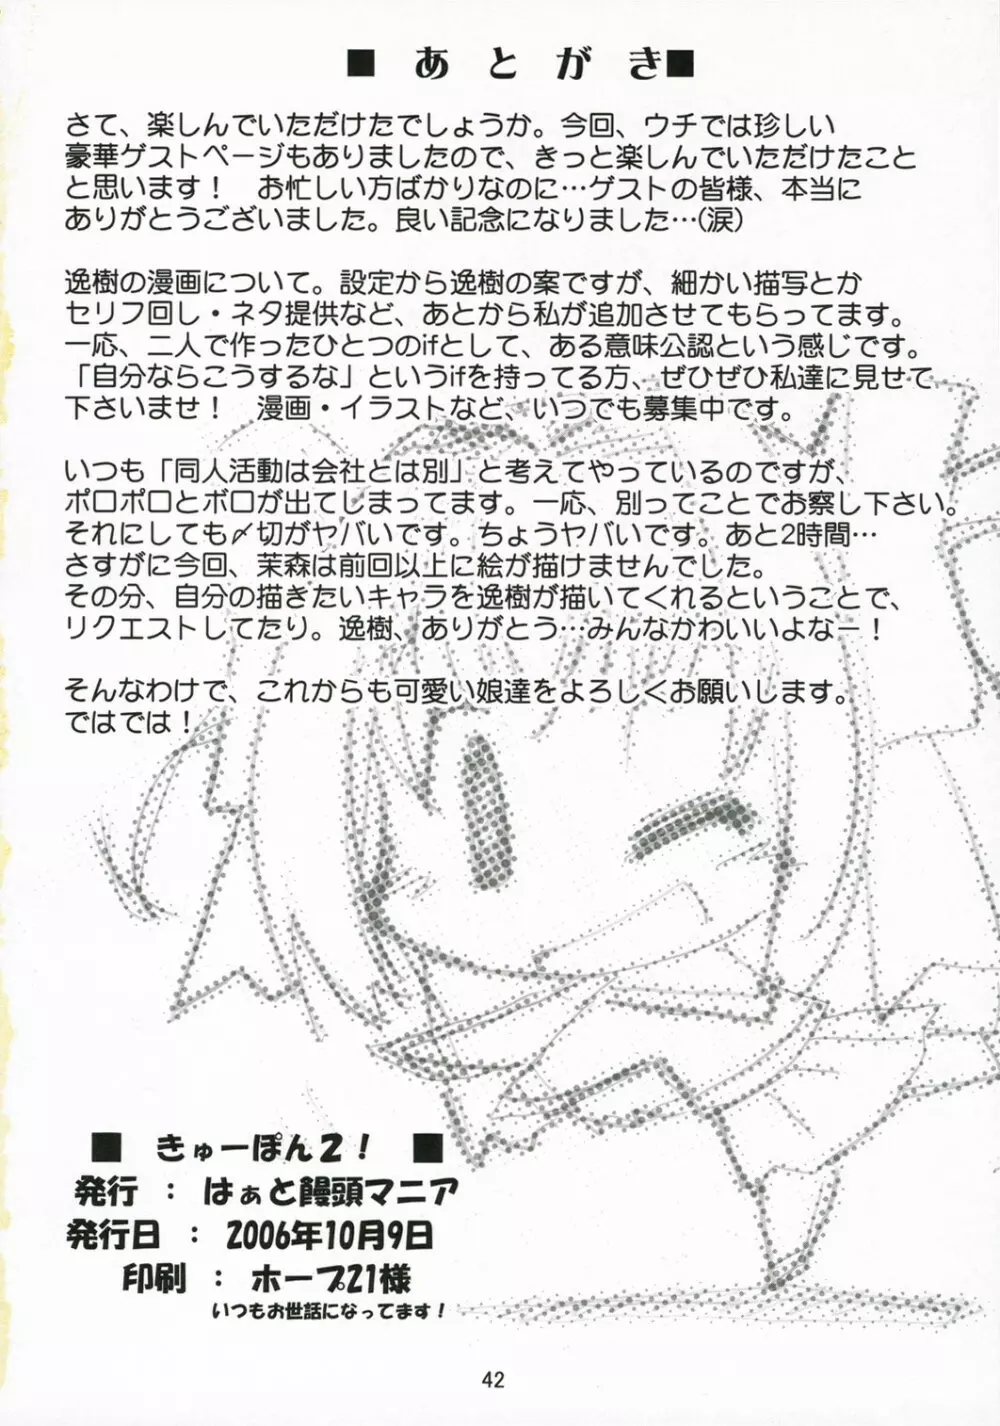 ■ あとがき■
さて、楽しんでいただけたでしょうか。今回、ウチでは珍しい
豪華ゲストページもありましたので、きっと楽しんでいただけたこと
と思います！　お忙しい方ばかりなのに…ゲストの皆様、本当に
ありがとうございました。良い記念になりました…(涙)
逸樹の漫画について。設定から逸樹の案ですが、細かい描写とか
セリフ回し・ネタ提供など、あとから私が追加させてもらってます。
一応、二人で作ったひとつのifとして、ある意味公認という感じです。
「自分ならこうするな」というifを持ってる方、ぜひぜひ私達に見せて
下さいませ！　漫画・イラストなど、いつでも募集中です。
いつも「同人活動は会社とは別」と考えてやっているのですが、
ポロポロとボロが出てしまってます。一応、別ってことでお察し下さい。
それにしても〆切がヤバいです。ちょうヤバいです。あと2時間…
さすがに今回、茉森は前回以上に絵が描けませんでした。
その分、自分の描きたいキャラを逸樹が描いてくれるということで、
リクエストしてたり。逸樹、ありがとう…みんなかわいいよなー！
そんなわけで、これからも可愛い娘達をよろしくお願いします。
ではでは！
■ きゅーぽん２！ ■
発行 ： はぁと饅頭マニア
発行日 ： 2006年10月9日
印刷 ： ホープ21様
いつもお世話になってます！
42